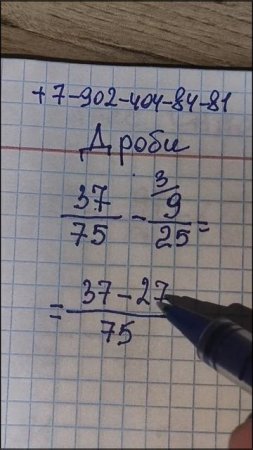 +7-902-404-84-81
Дроби
37/75 - 9/25 3/ =
= 37-27/75